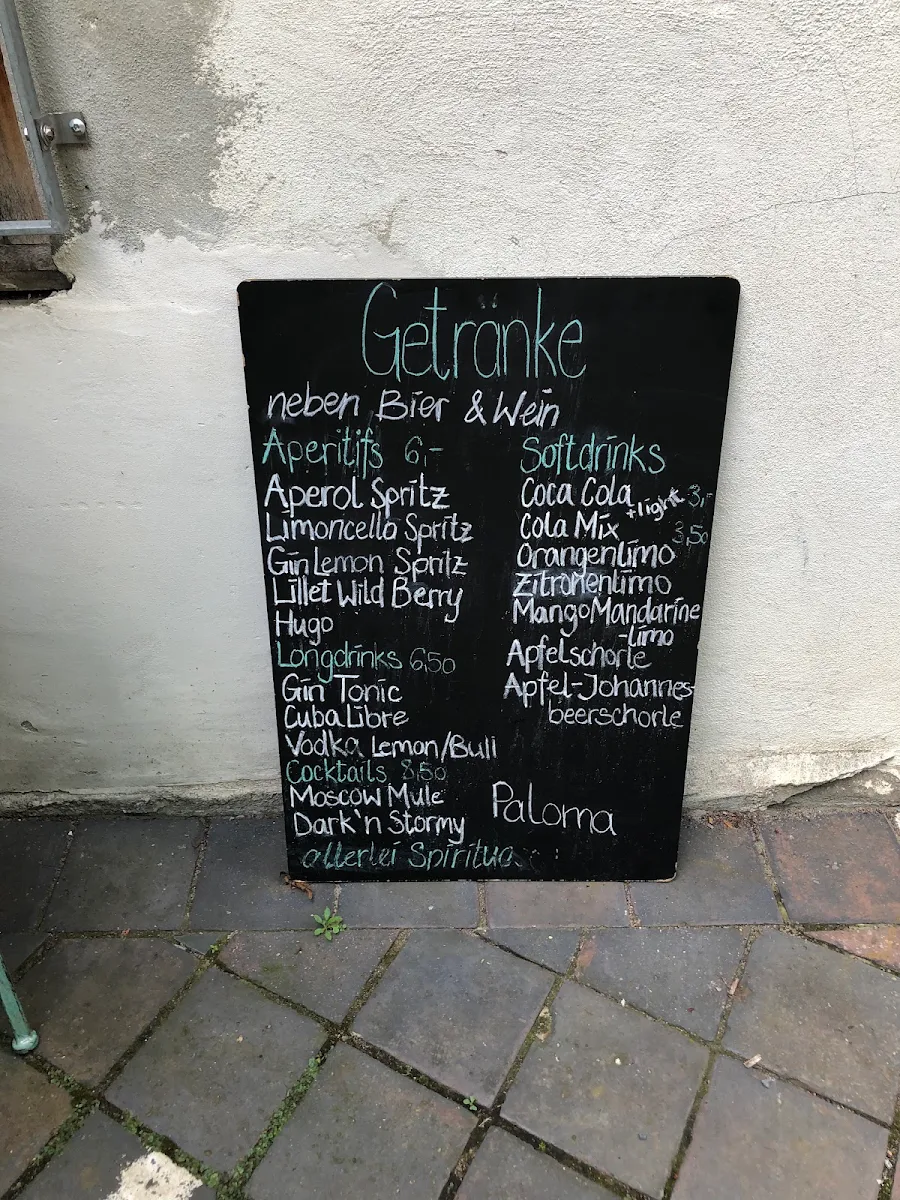 Getränke
neben Bier & Wein
Aperitifs 6,-
Aperol Spritz
Limoncello Spritz
Gin Lemon Spritz
Lillet Wild Berry
Hugo
Longdrinks 6,50
Gin Tonic
Cuba Libre
Vodka Lemon/Bull
Cocktails 8,50
Moscow Mule
Dark'n Stormy
Paloma
allerlei
Softdrinks
Coca Cola
+light 3,-
Cola Mix 3,50
Orangenlimo
Zitronenlimo
Mango Mandarine
-limo
Apfelschorle
Apfel-Johannes-
beerschorle